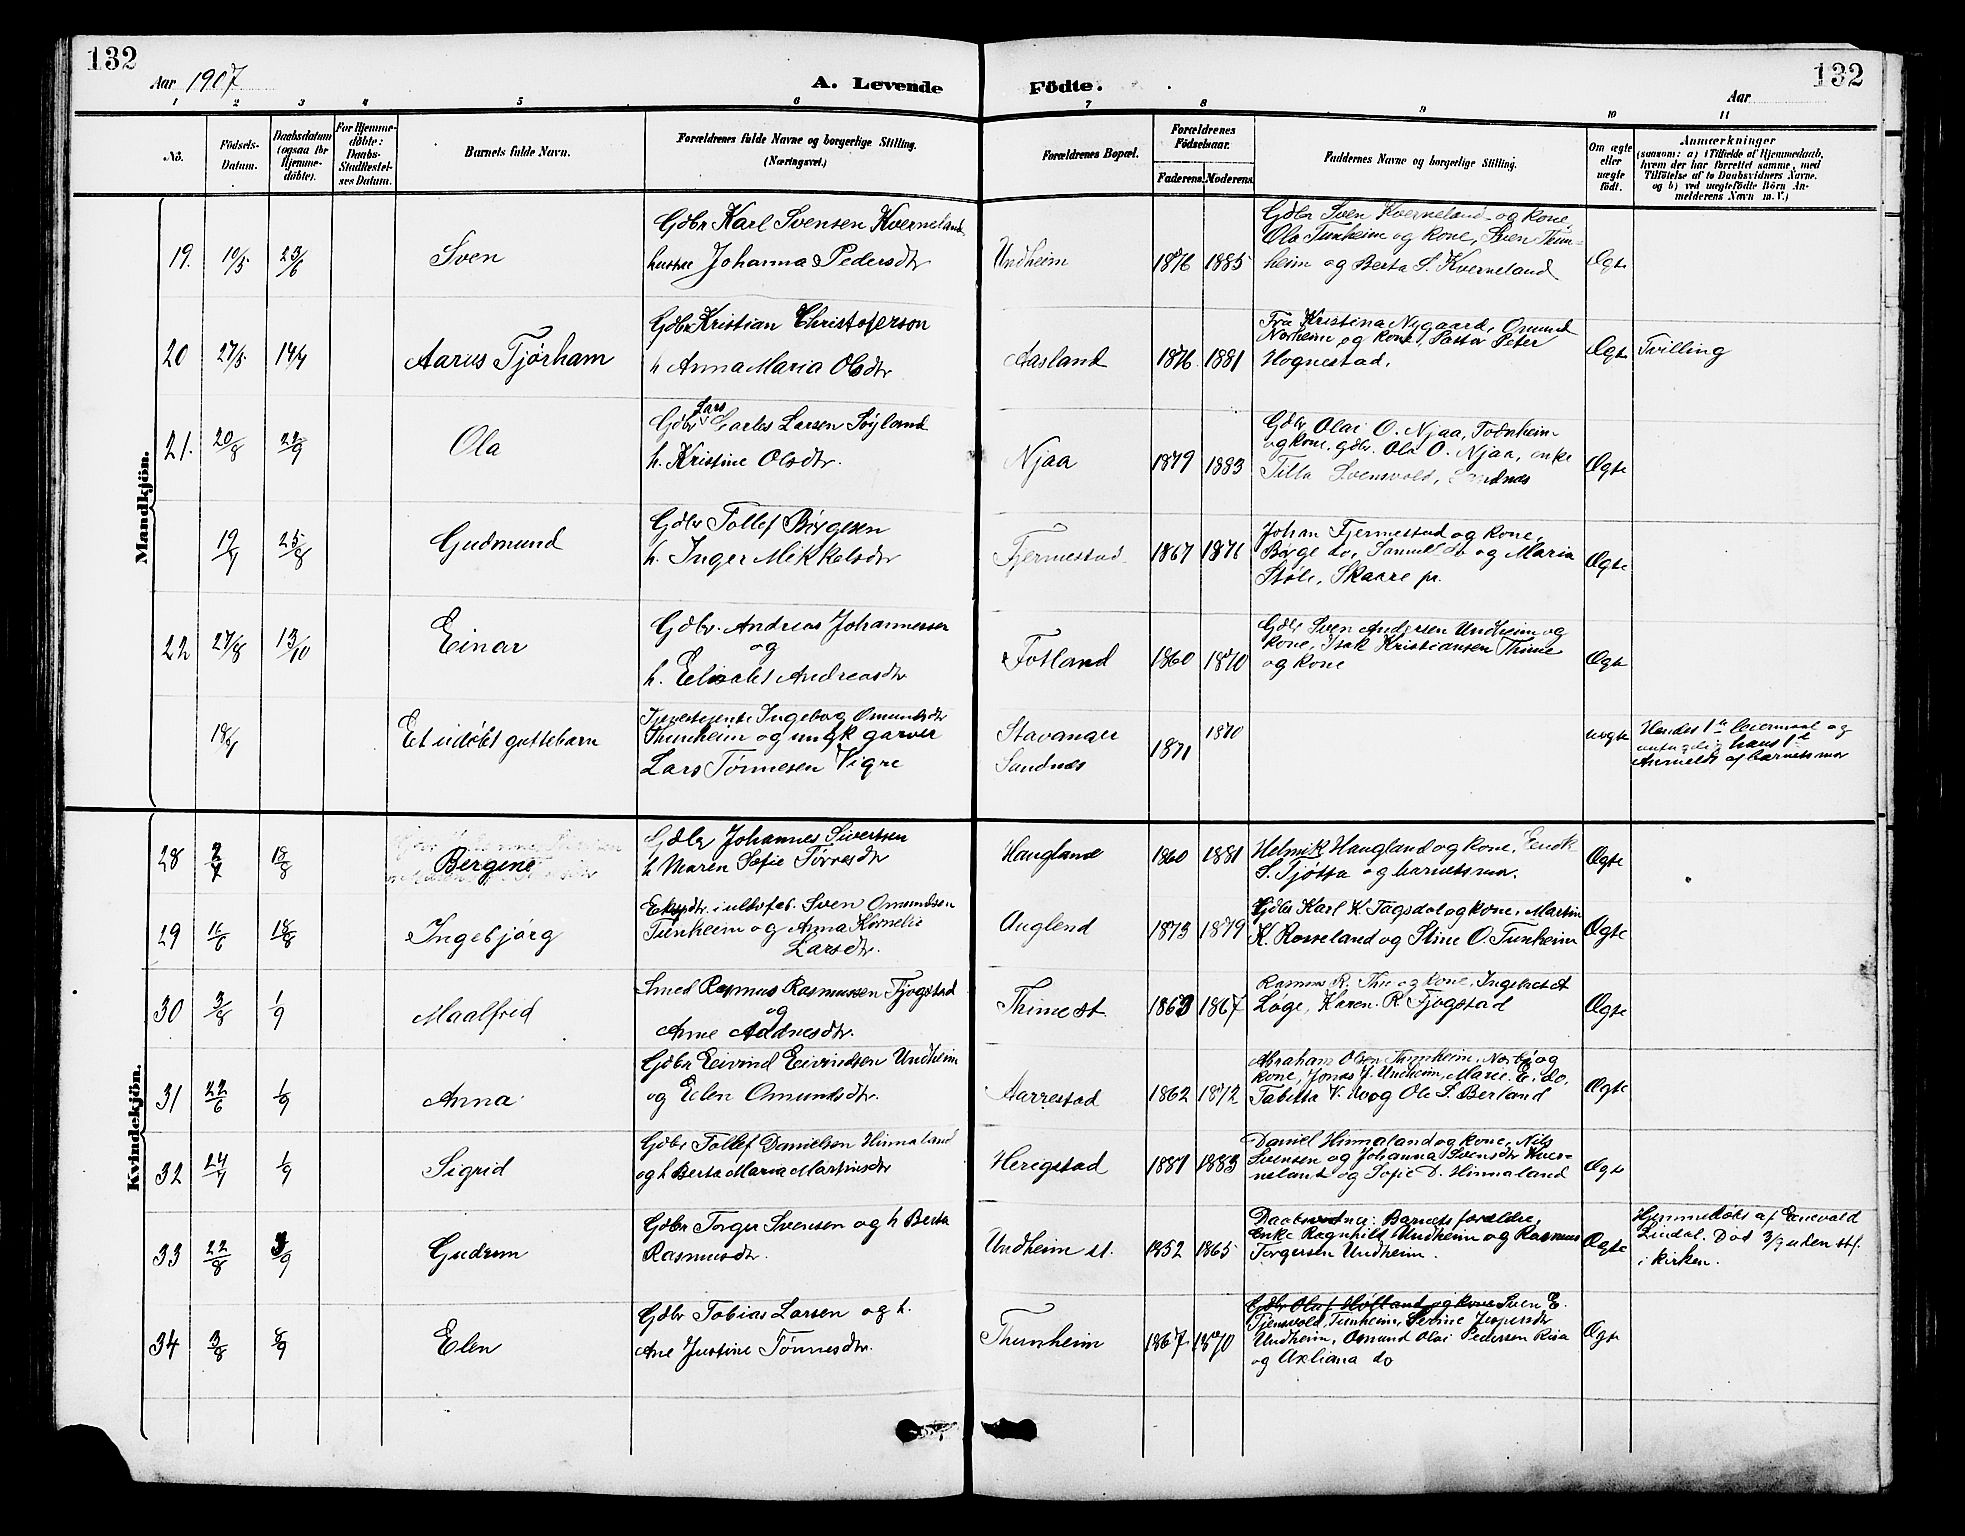 132
Aar 1907
A. Levende
Födte.
132
Aar
1 2 3 4 5 6 7 8 9 10 11
No.
Födsels-
Datum.
Daabsdatum
(ogsaa for
Hjemme-
döbte).
For Hjemme-
döbte:
Daabs-
Stadfæstel-
ses Datum.
Barnets fulde Navn.
Forældrenes fulde Navne og borgerlige Stilling.
(Næringsvei.)
Forældrenes Bopæl.
Forældrenes
Födselsaar.
Faderens.
Moderens.
Faddernes Navne og borgerlige Stilling.
Om ægte
eller
uægte
födt.
Anmærkninger
(saasom: a) i Tilfælde af Hjemmedaab,
hvem der har forrettet samme, med
Tilföielse af to Daabsvidners Navne,
og b) ved uægtefödte Börn An-
melderens Navn m. V.)
Mandkjön.
19. 10/5 23/6
Sven
Gdbr Karl Svensen Kverneland
hustru Johanna Pedersdtr
Undheim
1876 1885
Gdbr Sven Kverneland og kone,
Ola Tunheim og kone, Sven Thun-
heim og Berta S. Kverneland
Ægte
20 27/5 14/7
Aarus Tjørham
Gdbr Kristian Christoferson
h Anna Maria Olsdtr
Aasland
1876 1881
Fra Kristina Nygaard, Omund
Norheim og kone, Pastor Peter
Hognestad.
Ægte
Tvilling
21. 20/8 22/9
Ola
Lars
Gdbr Larsen Søyland
h. Kristine Olsdtr.
Njaa
1879 1883
Gdbr Olai O. Njaa, Todnheim
og kone, gdbr. Ola O. Njaa, enke
Tilla Svensvold, Sandnes
Ægte
19/7 25/8
Gudmund
Gdbr Tollef Børgesen
h. Inger Mikkelsdtr
Fjermestad
1867 1876
Johan Fjermestad og kone,
Børge do, Samuel do og Maria
Støle, Skaare pr.
Ægte
22 27/8 13/10
Einar
Gdbr. Andreas Johannessen
og
h. Elisabet Andreasdtr
Fotland
1860 1870
Gdbr Sven Andersen Undheim og
kone, Isak Kristiansen Thime
og kone
Ægte
18/7
Et udøbt guttebarn
Tjenestejente Ingeborg Omundsdtr
Thunheim og ungk garver
Lars Tønnesen Vigre
Stavanger
Sandnes
1871
1870
uegte
Hendes 1te leiermaal og
hans 1te
Anmeldt af barnets mor
Kvindekjön.
28 2/7 18/8
Bergine
Gdbr Johannes Sivertsen
h Maren Sofie Tørresdtr
Haugland
1860 1881
Helmik Haugland og kone,
S. Tjøtta og barnets mor.
Ægte
29 16/6 18/8
Ingebjørg
Sven Omundsen
Tunheim og Anna Kornelie
Larsdtr.
Auglend
1873 1879
Gdbr Karl K Tagsdal og kone, Martin
K. Rosseland og Stine O. Tunheim
Ægte
30 3/8 1/9
Maalfrid
Smed Rasmus Rasmussen Fjogstad
og
Ane Addnesdtr.
Thime st.
1863 1867
Rasmus R. Thu og kone, Ingebret St
Løge, Karen R Fjogstad
Ægte
31 22/6 1/9
Anna
Gdbr Eivind Eivindsen Undheim
og Elen Omundsdtr.
Aarrestad
1862 1872
Abraham Olsen Thunheim, Nærbø og
kone, Jonas J. Undheim, Marie E. do,
Tabitta V. do og Ole S. Berland
Ægte
32 24/7 1/9
Sigrid
Gdbr Tollef Danielsen Hinnaland
og h Berta Maria Martinsdtr
Herigstad
1881 1883
Daniel Hinnaland og kone, Nils
Svensen og Johanna Svensdtr Kver-
neland og Sofie D. Hinnaland
Ægte
33 22/8 3/9
Gudrun
Gdbr Torger Svensen og h Berta
Rasmusdtr.
Undheim st.
1852 1865
Daabsvidner: Barnets forældre,
Enke Ragnhild Undheim og Rasmus
Torgersen Undheim.
Ægte
Hjemmedøbt af Enevald
Lindal. Død 3/9 uden stf.
i kirken.
34 3/8 8/9
Elen
Gdbr Tobias Larsen og h.
Ane Justine Tønnesdtr.
Thunheim
1867 1870
Gdbr Olaf Høiland og kone Sven E.
Tjensvold, Tunheim, Serine Jespersdtr
Undheim, Osmund Olai Pedersen Risa
og Axliana do
Ægte